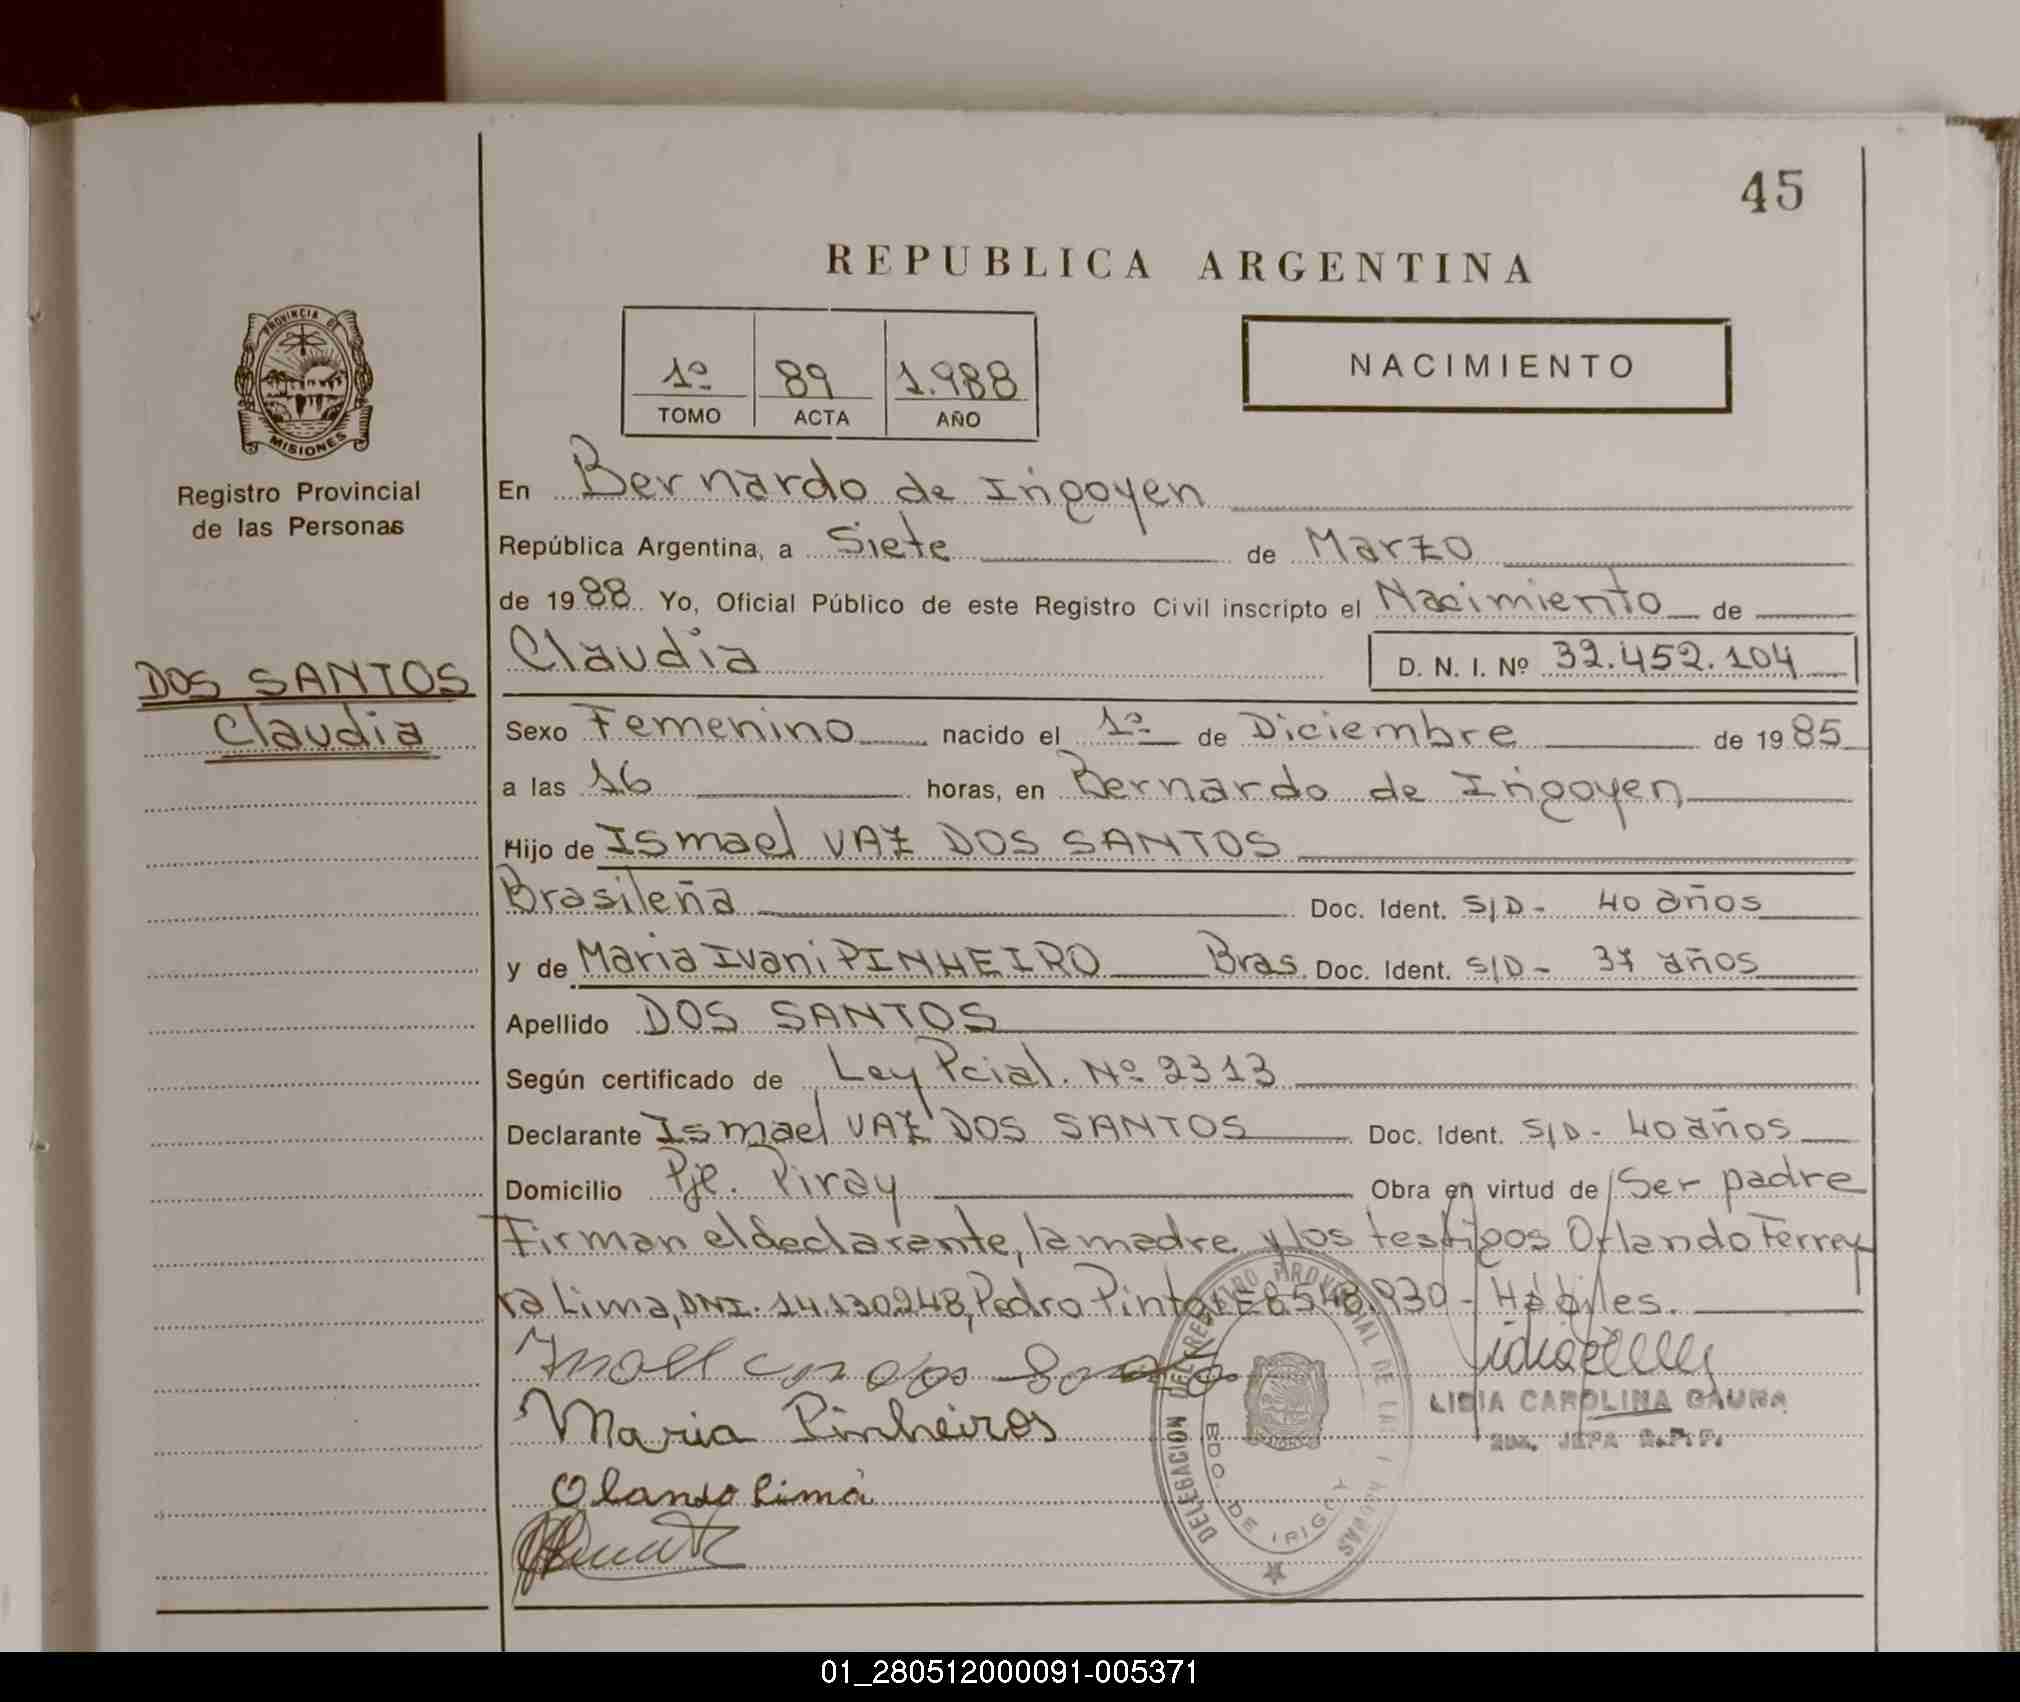 45
REPUBLICA ARGENTINA
PROVINCIA DE
MISIONES
Registro Provincial
de las Personas
1º 89 1.988
TOMO ACTA AÑO
NACIMIENTO
En Bernardo de Irigoyen
República Argentina, a Siete de Marzo
de 1988 Yo, Oficial Público de este Registro Civil inscripto el Nacimiento de
Claudia D. N. I. Nº 32.452.104
DOS SANTOS
Claudia
Sexo Femenino nacido el 1º de Diciembre de 1985
a las 16 horas, en Bernardo de Irigoyen
Hijo de Ismael VAZ DOS SANTOS
Brasileña Doc. Ident. S/D- 40 años
y de Maria Ivani PINHEIRO Bras. Doc. Ident. S/D- 37 años
Apellido DOS SANTOS
Según certificado de Ley Pcial. Nº 2313
Declarante Ismael VAZ DOS SANTOS Doc. Ident. S/D- 40 años
Domicilio Pje. Piray Obra en virtud de Ser padre
Firman el declarante, la madre y los testigos Orlando Ferrey
ra Lima, DNI. 14.130.248, Pedro Pinto 8548.930- Hábiles.
Maria Pinheiros
Olando Lima
LIDIA CAROLINA GAUNA
DELEGACION DEL REGISTRO PROVINCIAL DE LAS PERSONAS
BDO. DE IRIGOY
01_280512000091-005371